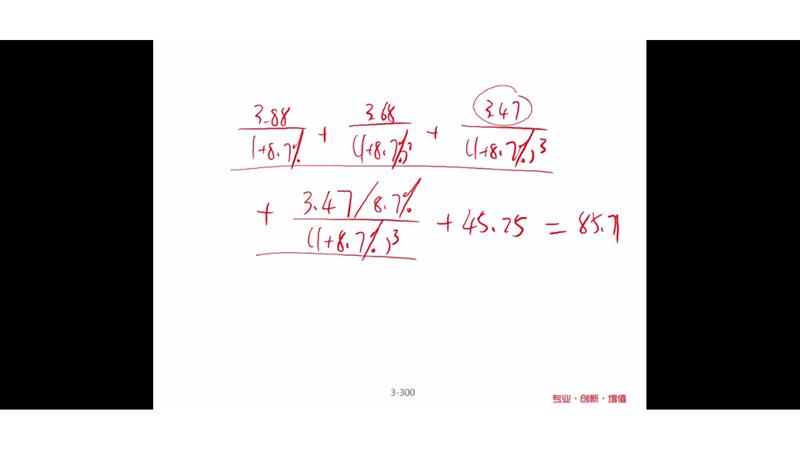 3.88/(1+8.7%) + 3.68/(1+8.7%)² + 3.47/(1+8.7%)³
+ (3.47/8.7%)/(1+8.7%)³ + 45.25 = 85.71
3-300
专业·创新·增值